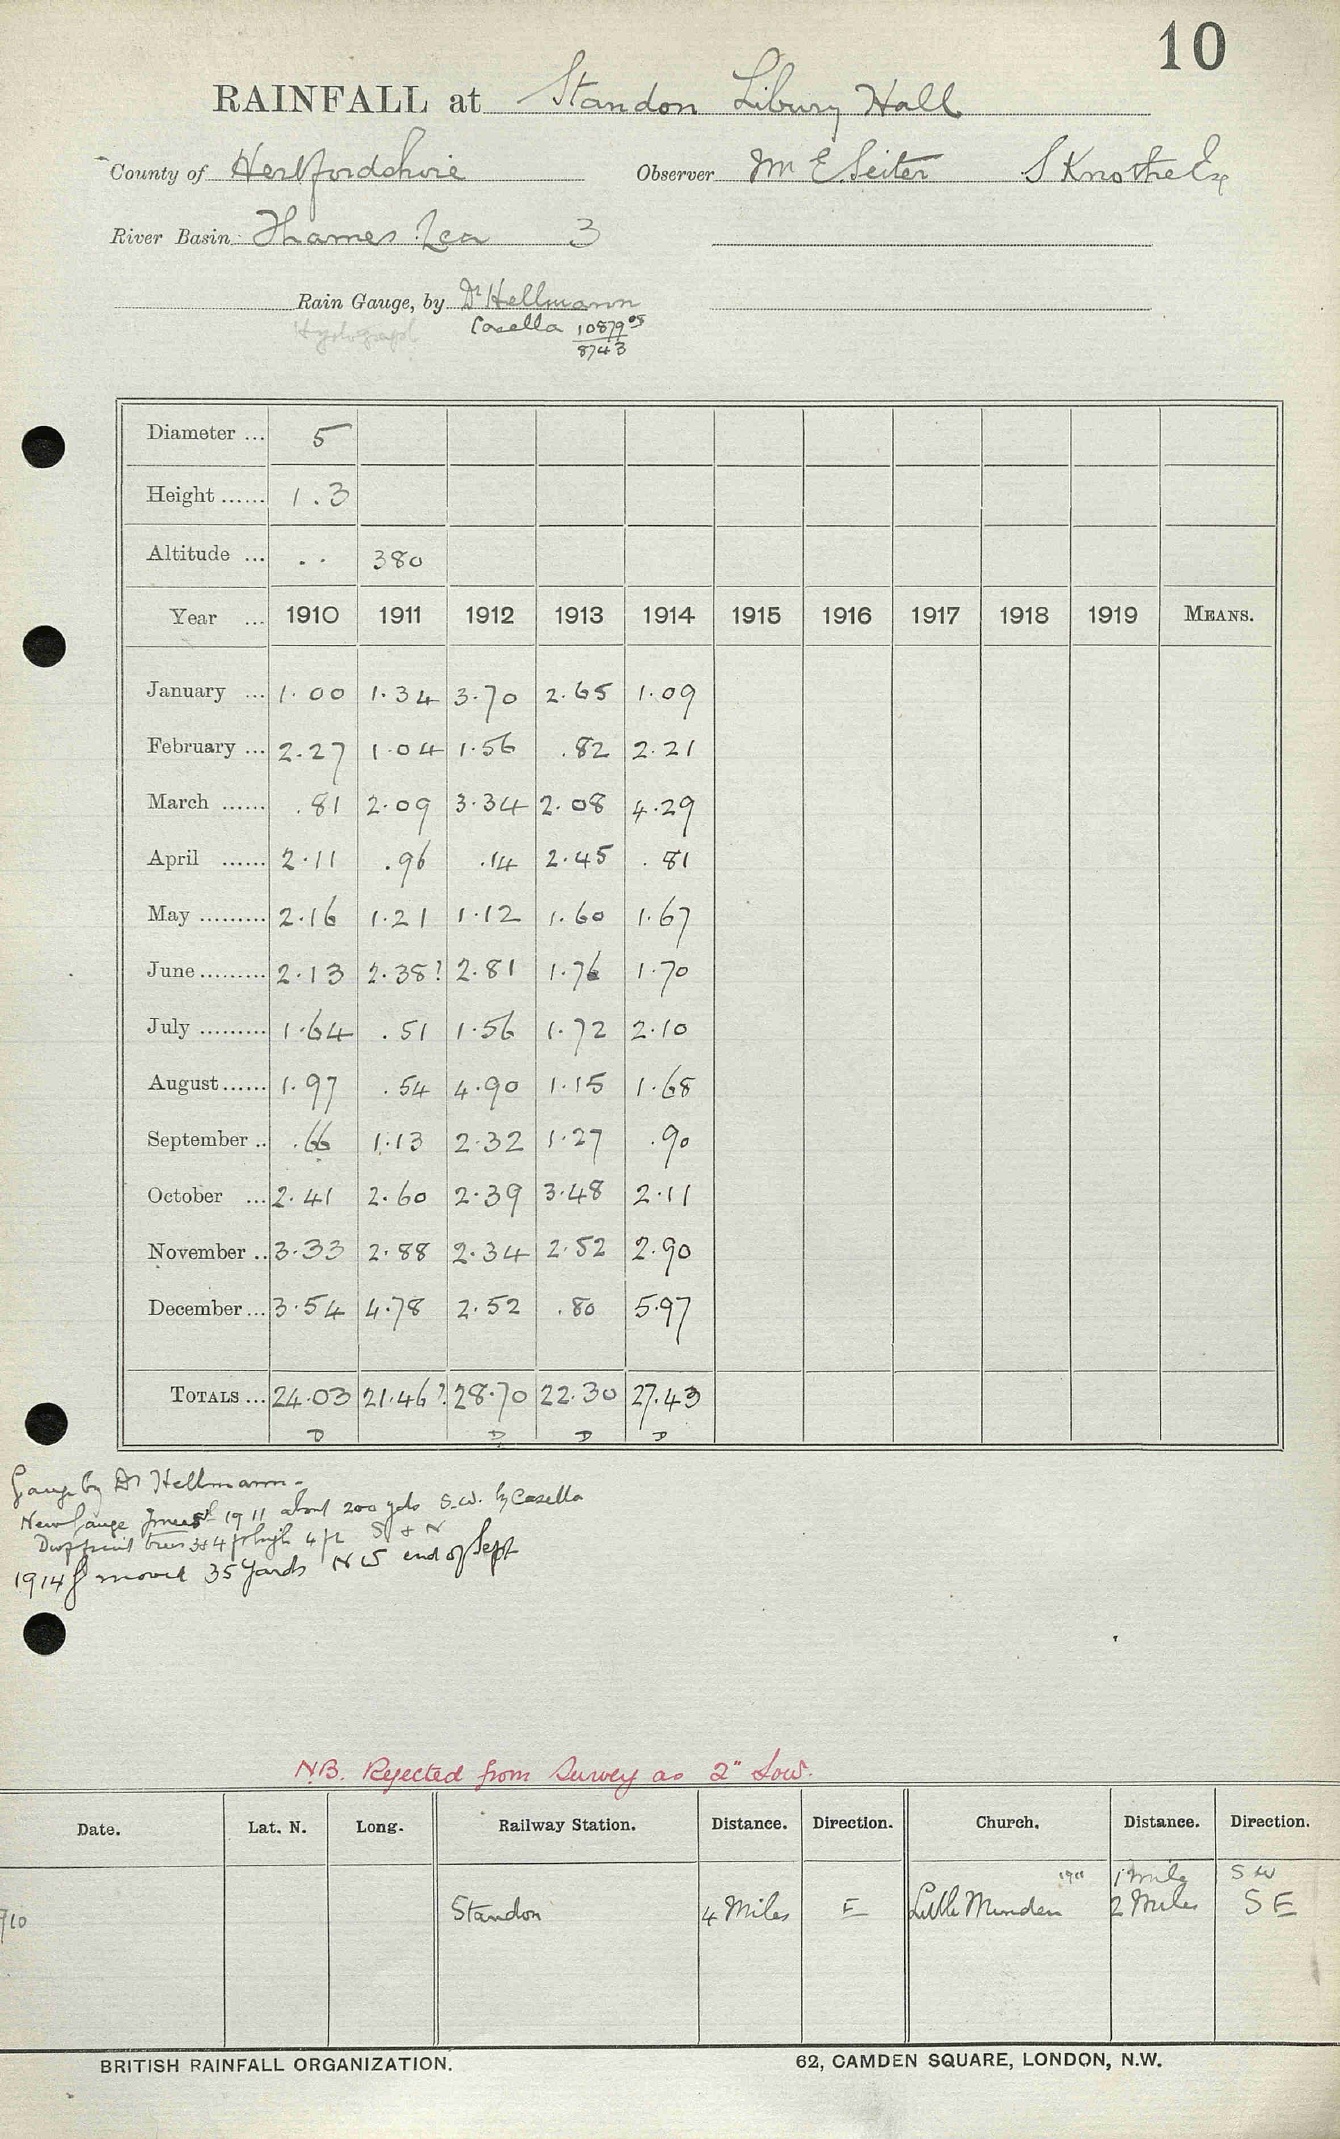 10
RAINFALL at Standon Libury Hall
County of Hertfordshire Observer Mr E Seiter S Knothe Esq
River Basin Thames Lea 3
Rain Gauge, by Dr Hellmann
Casella 10879 08
8743
Diameter ... 5
Height ...... 1.3
Altitude ... .. 380
Year ... 1910 1911 1912 1913 1914 1915 1916 1917 1918 1919 MEANS.
January ... 1.00 1.34 3.70 2.65 1.09
February ... 2.27 1.04 1.56 .82 2.21
March ...... .81 2.09 3.34 2.08 4.29
April ...... 2.11 .96 .14 2.45 .81
May ......... 2.16 1.21 1.12 1.60 1.67
June ......... 2.13 2.38? 2.81 1.76 1.70
July ......... 1.64 .51 1.56 1.72 2.10
August ...... 1.97 .54 4.90 1.15 1.68
September .. .66 1.13 2.32 1.27 .90
October ... 2.41 2.60 2.39 3.48 2.11
November .. 3.33 2.88 2.34 2.52 2.90
December ... 3.54 4.78 2.52 .80 5.97
TOTALS ... 24.03 21.46? 28.70 22.30 27.43
D D D D
Gauge by Dr Hellmann -
New Gauge 1911 about 200 yds S.W. by Casella
trees 3 & 4 ft high 4 ft S & N
1914 moved 35 yards NW end of Sept
N.B. Rejected from Survey as 2" low.
Date. Lat. N. Long. Railway Station. Distance. Direction. Church. Distance. Direction.
1911 1 mile SW
910 Standon 4 Miles E Little Munden 2 Miles SE
BRITISH RAINFALL ORGANIZATION. 62, CAMDEN SQUARE, LONDON, N.W.